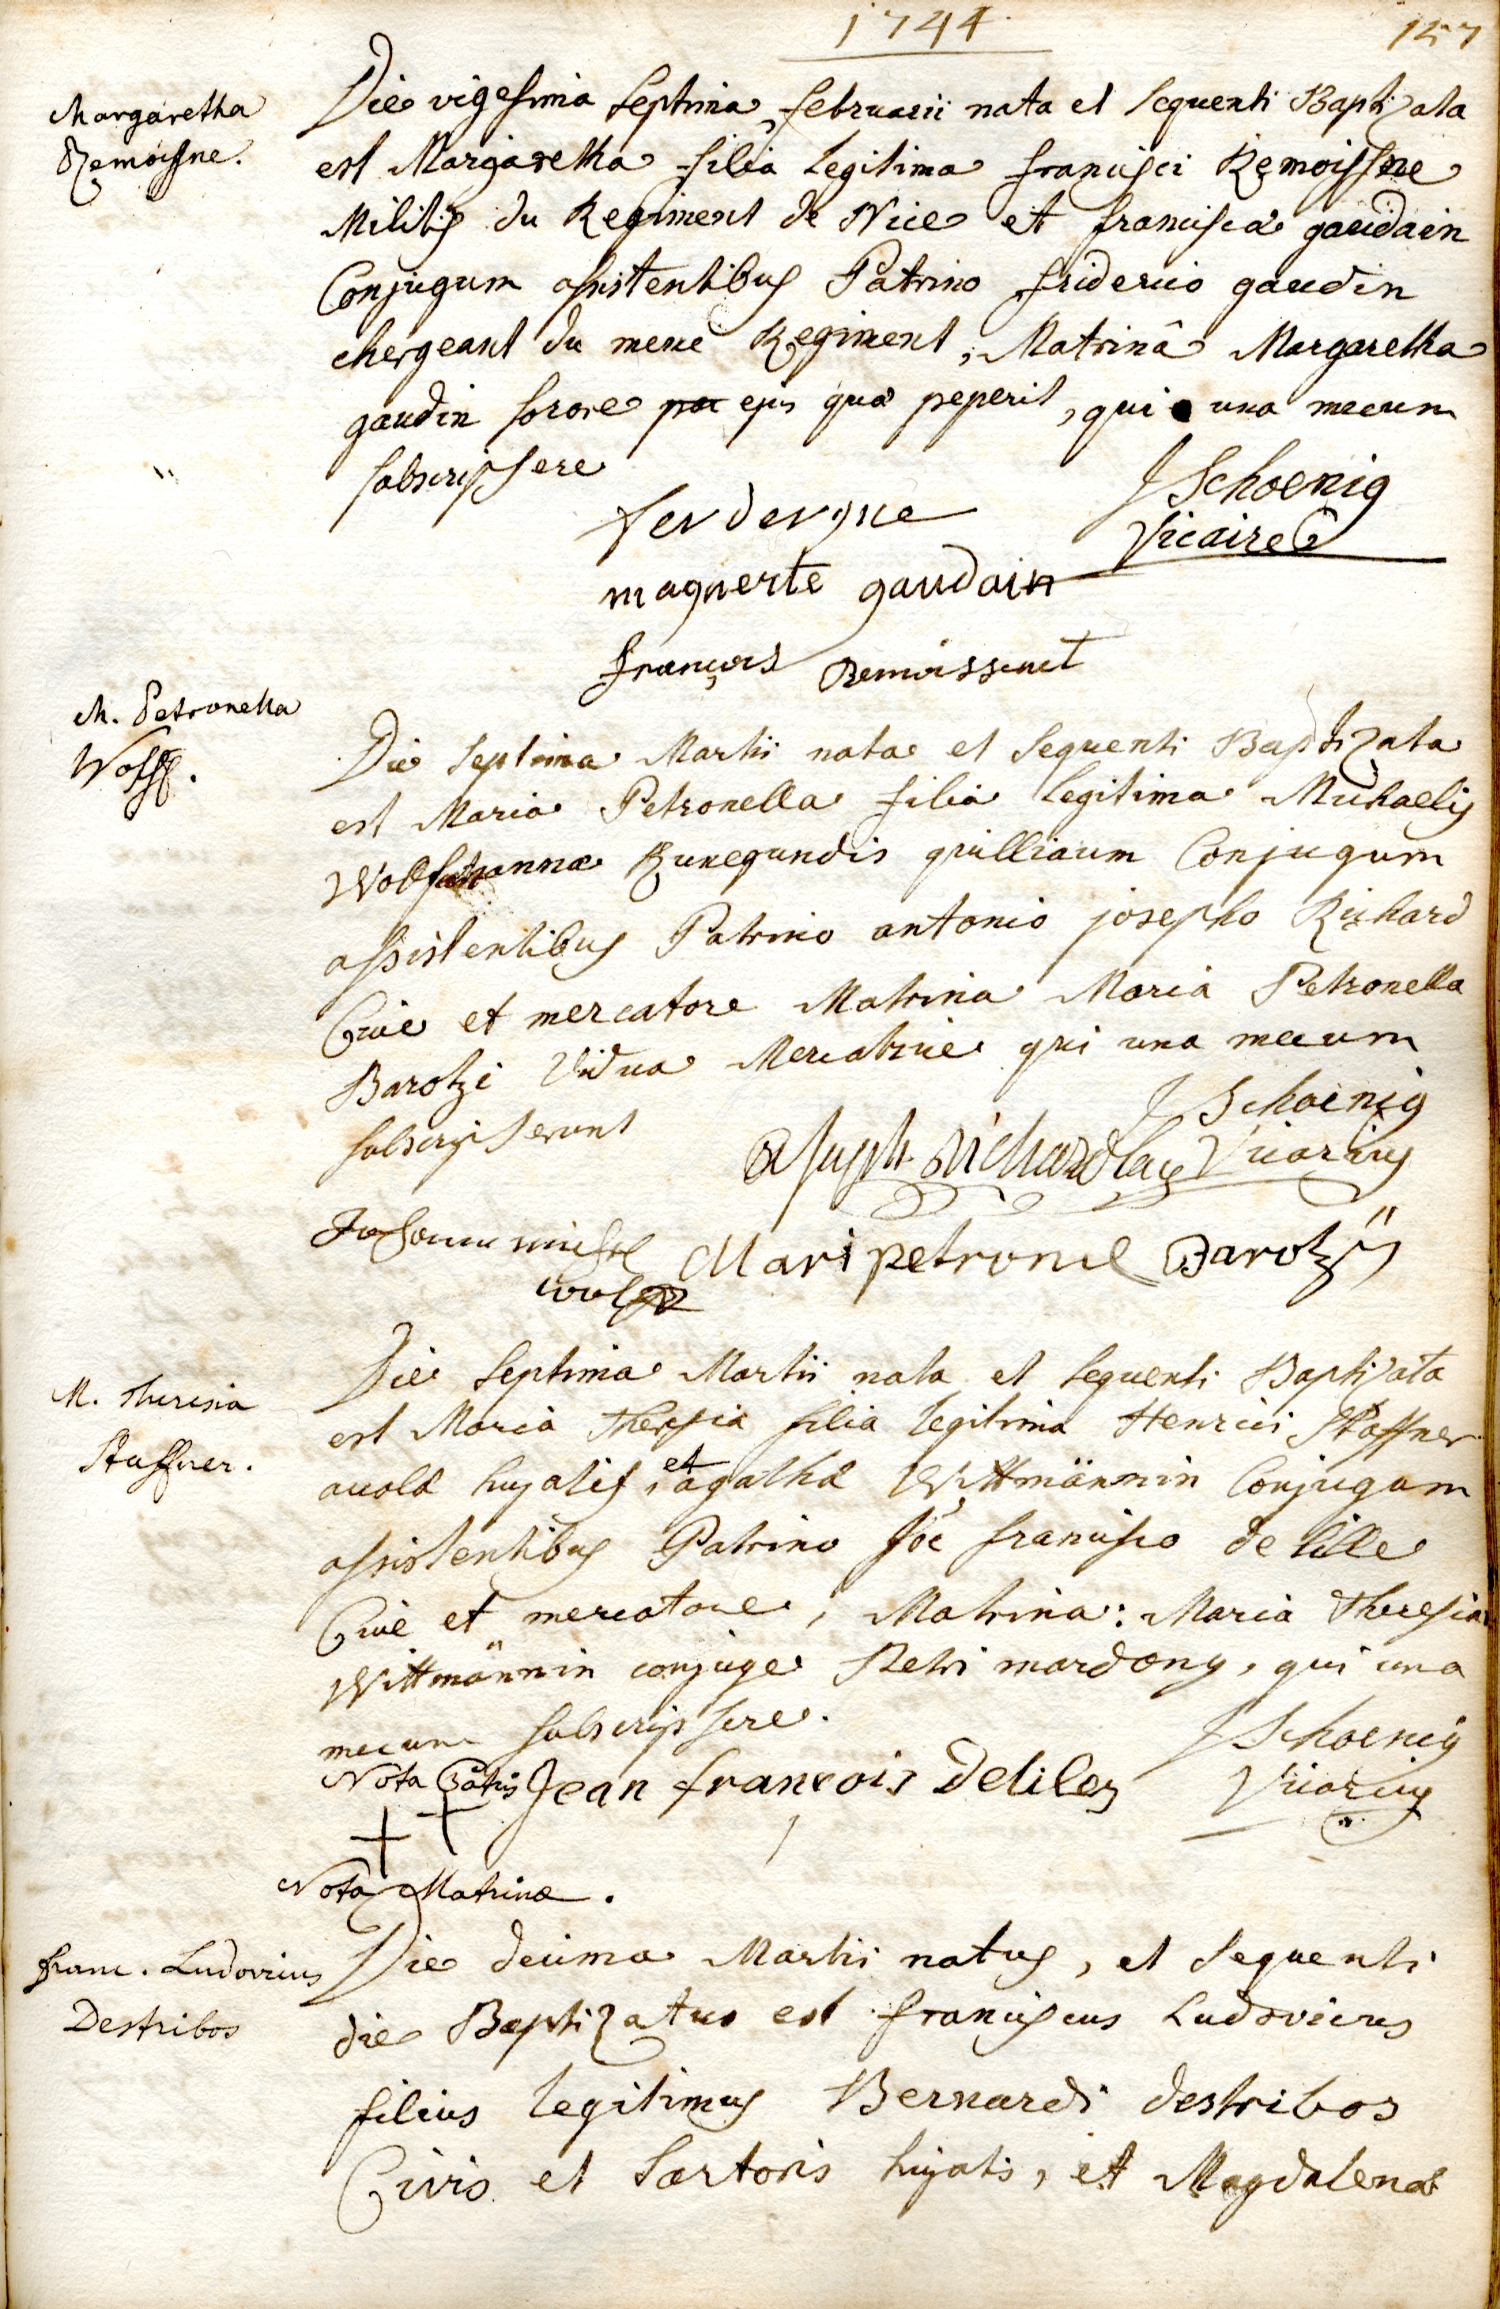 1744
157
Margaretha
Remoisne.
Die vigesima septima februarii nata et sequenti Baptizata
est Margaretha filia legitima francisci Remoissne
Militis du Regiment de Nice et francisca gaudain
Conjugum assistentibus Patrino friderico gaudin
chergeant du meme Regiment, Matrinâ Margaretha
gaudin sorore ejus quæ peperit, qui una mecum
subscripsere
J Schoenig
Vicaire
maguerte gaudain
françois Remoissenet
M. Petronella
Wolff.
Die septima Martii nata et sequenti Baptizata
est Maria Petronella filia legitima Michaelis
Kunegundis Conjugum
assistentibus Patrino antonio josepho Richard
Cive et mercatore Matrina Maria Petronella
Barotzi Vidua Mercatrice qui una mecum
subscripserunt
J Schoenig
Vicarius
Mari petronel Barotzin
M. Theresia
Staffner.
Die septima Martii nata et sequenti Baptizata
est Maria Theresia filia legitima Henrici Staffner
hujatis, et agathæ Wittmännin Conjugum
assistentibus Patrino Joe francisco de lille
Cive et mercatore, Matrina: Maria Theresia
Wittmännin conjuge Petri mardony, qui una
mecum subscripsere.
J Schoenig
Vicarius
Nota Patris Jean francois Deliles
Nota Matrinæ.
franc. Ludovicus
Destribos
Die decima Martii natus, et sequenti
die Baptizatus est franciscus Ludovicus
filius legitimus Bernardi destribos
Civis et Sartoris hujatis, et Magdalenæ